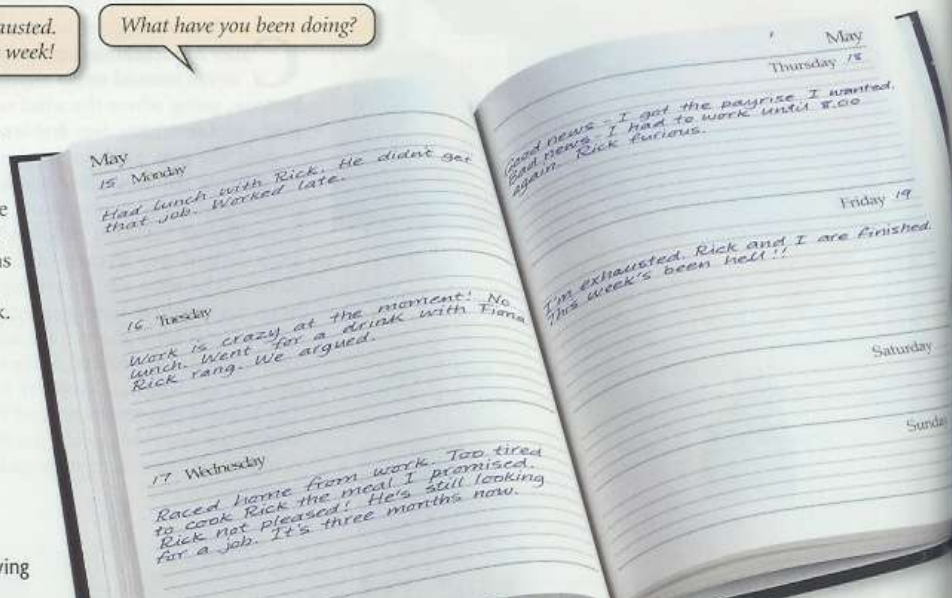 austed.
week!
What have you been doing?
May
15 Monday
Had lunch with Rick. He didn't get
that job. Worked late.
16 Tuesday
Work is crazy at the moment! No
lunch. Went for a drink with Fiona
Rick rang. We argued.
17 Wednesday
Raced home from work. Too tired
to cook Rick the meal I promised.
Rick not pleased! He's still looking
for a job. It's three months now.
May
Thursday 18
Good news - I got the payrise I wanted.
Bad news - I had to work until 8.00
again. Rick furious.
Friday 19
I'm exhausted. Rick and I are finished.
This week's been hell!!
Saturday
Sunda